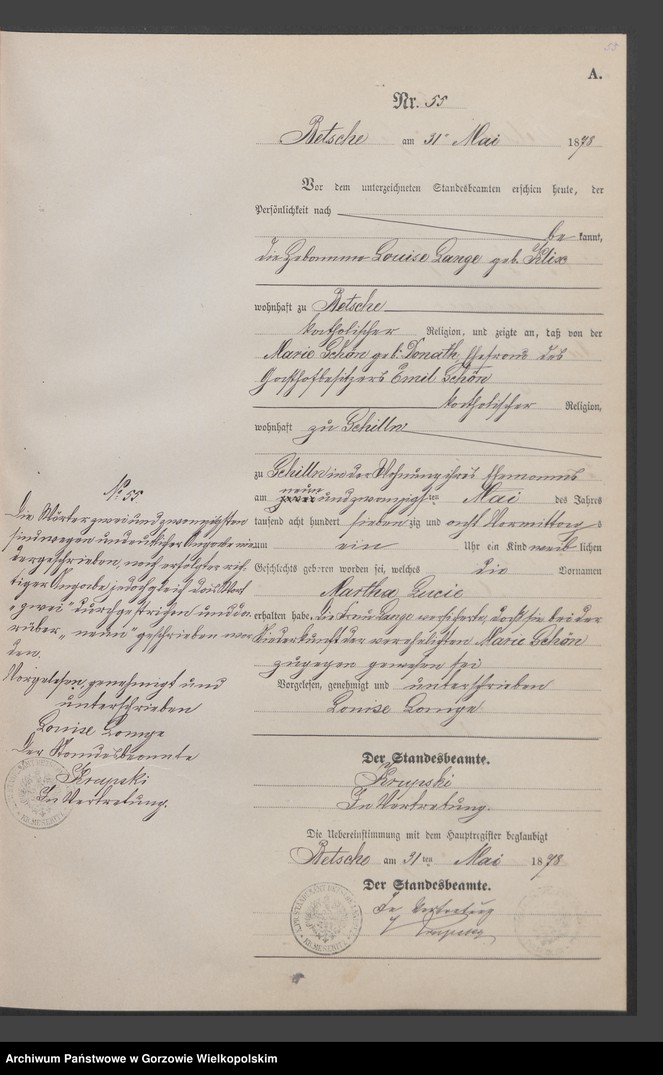 A.
Nr. 55
Betsche am 31ten Mai 1878
Vor dem unterzeichneten Standesbeamten erschien heute, der
Persönlichkeit nach
be kannt,
die Hebamme Louise Lange geb. Klix
wohnhaft zu Betsche
katholischer Religion, und zeigte an, daß von der
Marie Schön geb: Donath, Ehefrau des
Gasthofbesitzers Emil Schön
katholischer Religion,
wohnhaft zu Schilln
zu Schilln in der Wohnung ihres Ehemannes
neun
am zwei und zwanzigsten Mai des Jahres
tausend acht hundert sieben zig und acht Vormittags
um ein Uhr ein Kind weib lichen
Geschlechts geboren worden sei, welches die Vornamen
Martha Lucie
erhalten habe. Die Frau Lange versicherte, daß sie bei der
Niederkunft der verehelichten Marie Schön
zugegen gewesen sei
Vorgelesen, genehmigt und unterschrieben
Louise Lange
Der Standesbeamte.
Krupski
In Vertretung.
Die Uebereinstimmung mit dem Hauptregister beglaubigt
Betsche am 31ten Mai 1878
Der Standesbeamte.
In Vertretung
Krupski
No 55.
Die Wörter zwei und zwanzigsten
sind wegen undeutlicher Angabe nie
dergeschrieben, nach erfolgter rich
tiger Angabe jedoch gleich das Wort
"zwei" durchgestrichen und da
rüber "neun" geschrieben wor
den.
Vorgelesen genehmigt und
unterschrieben
Louise Lange
Der Standesbeamte
Krupski
In Vertretung.
Archiwum Państwowe w Gorzowie Wielkopolskim